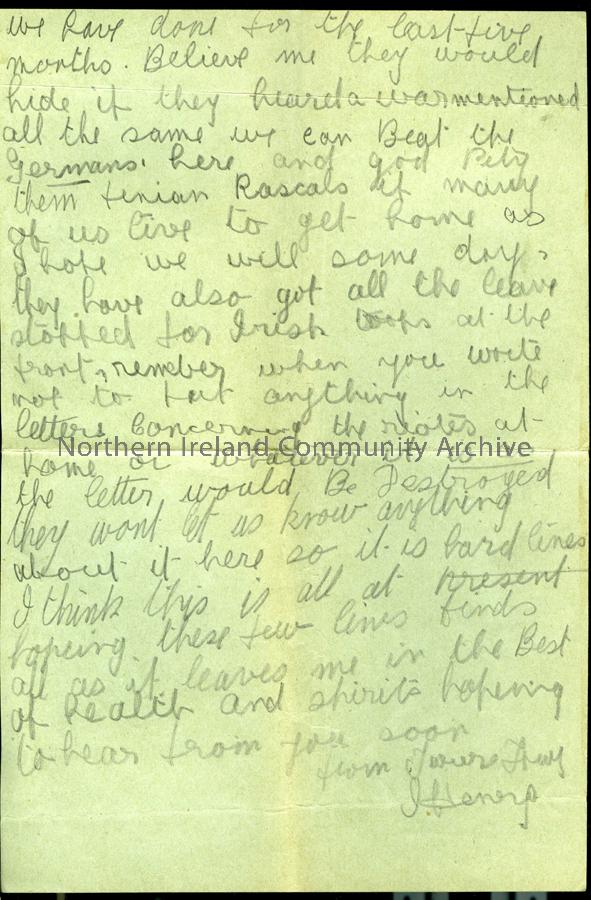 we have done for the last five
months. Believe me they would
hide if they heard a war mentioned
all the same we can Beat the
Germans here and god Pity
them fenian Rascals if many
of us live to get home as
I hope we will some day,
they have also got all the leave
stopped for Irish troops at the
front, rember when you write
not to put anything in the
letters concerning the riots at
Northern Ireland Community Archive
home or whatever it is
the letter would Be Destroyed
they wont let us know anything
about it here so it is hard lines
I think this is all at present
hopeing these few lines finds
all as it leaves me in the Best
of health and spirits hopeing
to hear from you soon
from yours Truly
J Henery